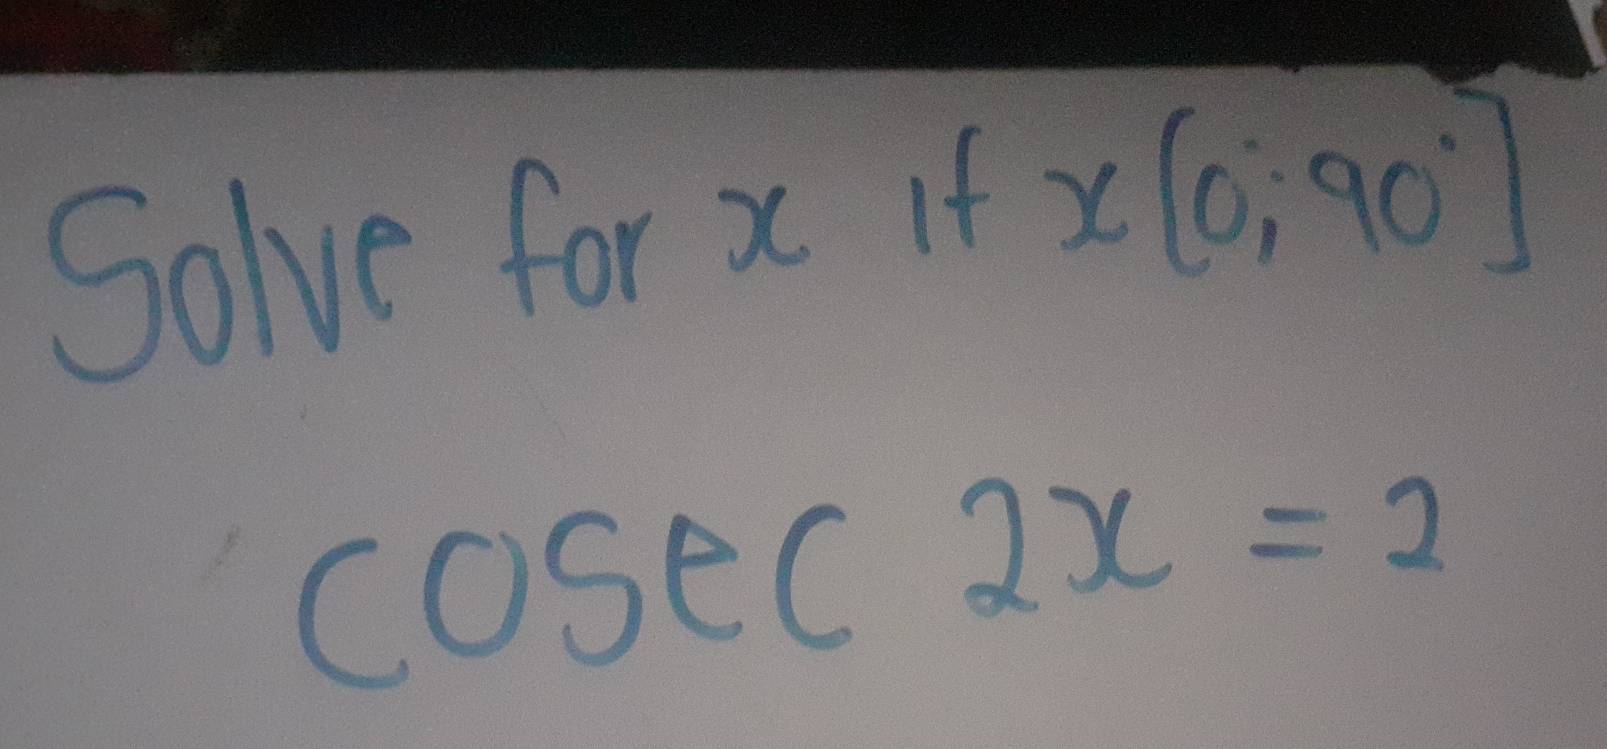 Solve for x if x[0°;90°]
cosec 2x = 2